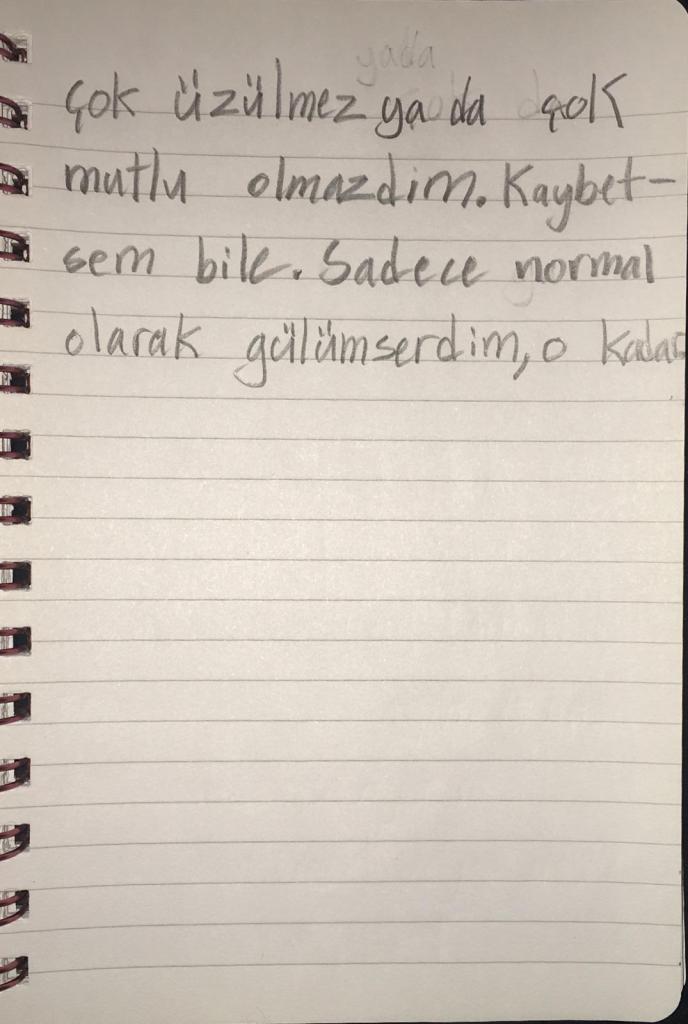 çok üzülmez ya da çok
mutlu olmazdim. Kaybet-
sem bile. Sadece normal
olarak gülümserdim, o kadar